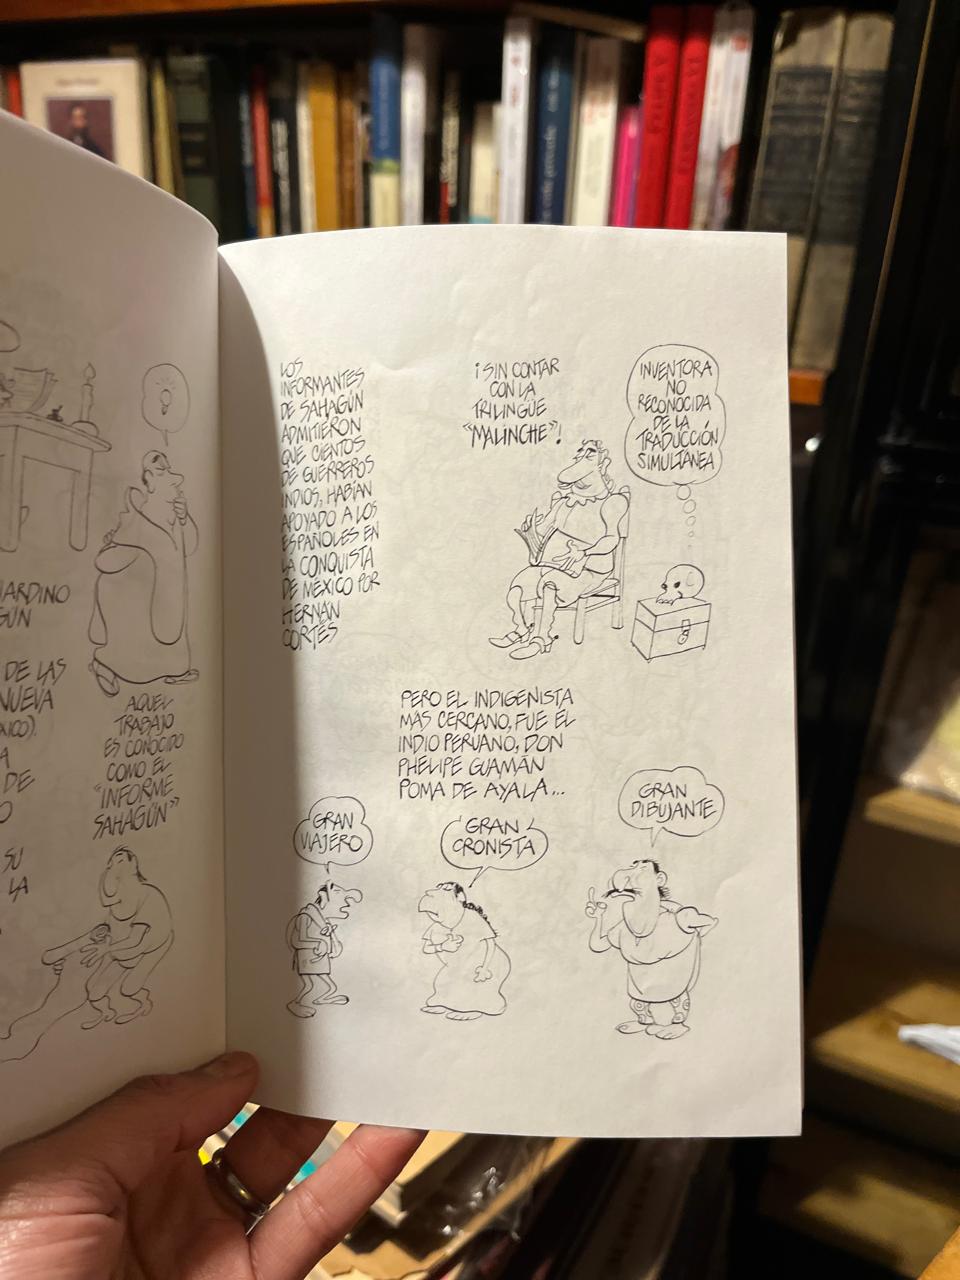 DE LAS
NUEVA
DE
SU
LA
AQUEL
TRABAJO
ES CONOCIDO
COMO EL
"INFORME
SAHAGÚN"
LOS
INFORMANTES
DE SAHAGÚN
ADMITIERON
QUE CIENTOS
DE GUERREROS
INDIOS, HABÍAN
APOYADO A LOS
ESPAÑOLES EN
LA CONQUISTA
DE MÉXICO POR
HERNÁN
CORTÉS
¡SIN CONTAR
CON LA
TRILINGÜE
"MALINCHE"!
INVENTORA
NO
RECONOCIDA
DE LA
TRADUCCIÓN
SIMULTÁNEA
PERO EL INDIGENISTA
MÁS CERCANO, FUE EL
INDIO PERUANO, DON
PHELIPE GUAMÁN
POMA DE AYALA...
GRAN
VIAJERO
GRAN
CRONISTA
GRAN
DIBUJANTE